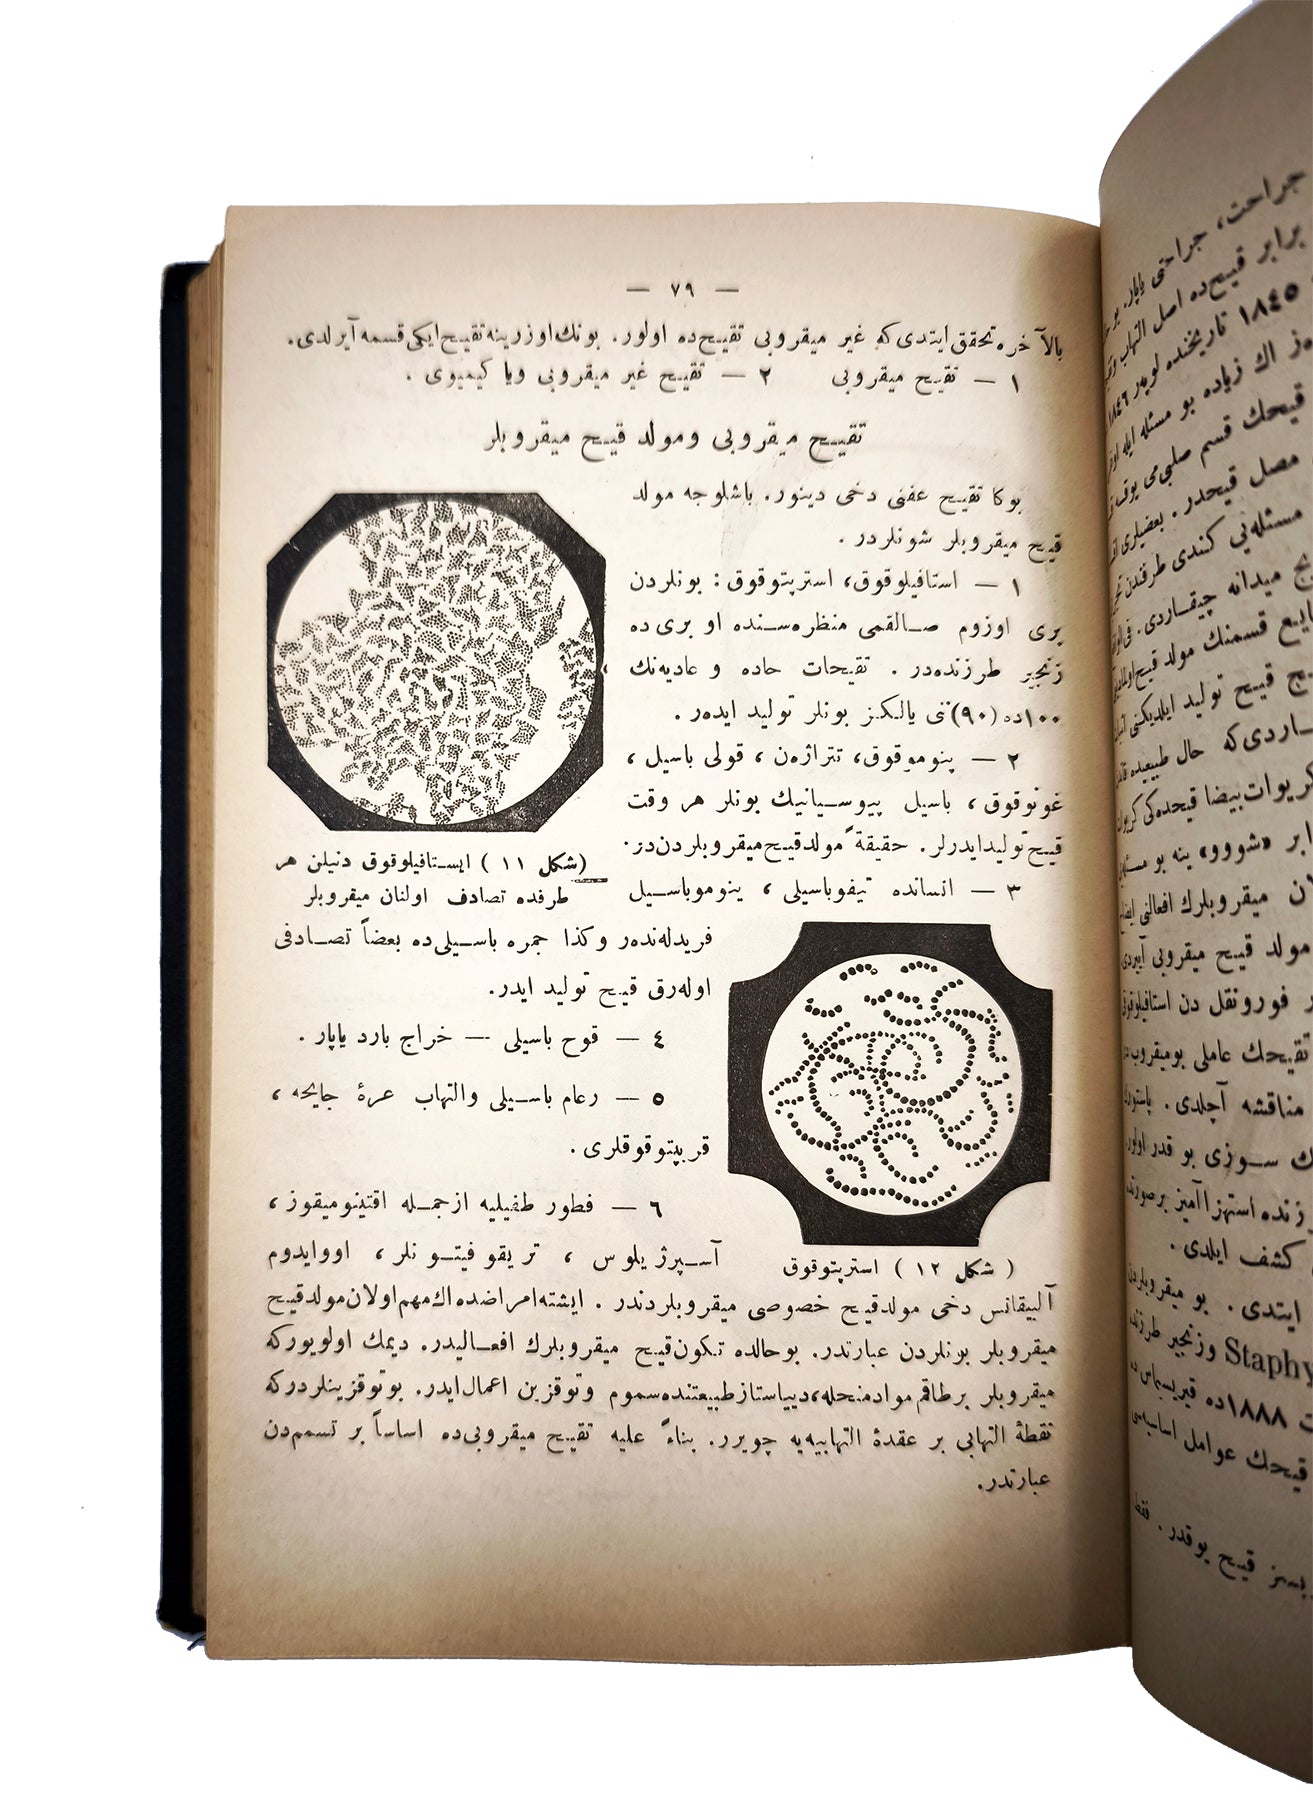 — ٧٩ —
بالآخره تحقق ایتدی‌که غیر میقروبی تقیح‌ده اولور. بونك اوزرینه تقیح ایکی قسمه آیرلدی.
١ — تقیح میقروبی ٢ — تقیح غیر میقروبی ویا کیمیوی .
تقیح میقروبی ومولد قیح میقروبلر
بوکا تقیح عفنی دخی دینور. باشلوجه مولد
قیح میقروبلر شونلردر .
١ — استافیلوقوق، استرپتوقوق : بونلردن
بری اوزوم صالقمی منظره‌سنده او بری‌ده
زنجیر طرزنده‌در . تقیحات حاده و عادیه‌نك ،
١٠٠ده (٩٠)نی یالکز بونلر تولید ایده‌ر.
٢ — پنوموقوق، تتراژه‌ن ، قولی باسیل ،
غونوقوق ، باسیل پیوسیانیك بونلر هر وقت
قیح تولیدایدرلر. حقیقةً مولدقیح میقروبلردن‌در.
(شکل ١١) ایستافیلوقوق دنیلن هر
طرفده تصادف اولنان میقروبلر
٣ — انسانده تیفوباسیلی ، پنوموباسیل
فریدله‌نده‌ر وکذا جمره باسیلی‌ده بعضاً تصادفی
اوله‌رق قیح تولید ایدر.
٤ — قوح باسیلی — خراج بارد یاپار .
٥ — رعام باسیلی والتهاب عرۀ جایحه ،
قریپتوقوقلری .
٦ — فطور طفیلیه ازجمله اقتینومیقوز ،
آسپرژیلوس ، تریقوفیتونلر ، اووایدوم
( شکل ١٢ ) استرپتوقوق
آلبیقانس دخی مولدقیح خصوصی میقروبلردندر . ایشته‌امراضده‌اك‌مهم‌اولان‌مولدقیح
میقروبلر بونلردن عبارتدر. بوحالده تکون‌قیح میقروبلرك افعالیدر. دیمك اولویورکه
میقروبلر برطاقم موادمنحله،دییاستازطبیعتنده‌سموم وتوقزین اعمال‌ایدر. بوتوقزینلردرکه
نقطۀ التهابی بر عقدۀ التهابیه‌یه چویرر. بناءً علیه تقیح میقروبی‌ده اساساً بر تسمم‌دن
عبارتدر.
جراحت، جراحتی یاپار.
برابر قیح‌ده اصل التهاب
١٨٤٥ تاریخنده لوبه‌ر ١٨٤٦
اك زیاده بو مسئله ایله
قیحك قسم صلبی‌می یوقسه
مصل قیحدر . بعضیلری
مسئله‌یی کندی طرفندن
میدانه چیقاردی.
قسمنك مولد قیح
قیح تولید ایلدیکنی
حال طبیعیده
کریوات‌بیضا قیحده‌کی
«شووو» ینه بو
میقروبلرك افعالنی
مولد قیح میقروبی آییردی
فورونقل دن استافیلوقوق
تقیحك عاملی بومیقروب
مناقشه آچلدی. پاستور
سوزی بو قدر اولور.
کشف ایلدی.
ایتدی . بو میقروبلردن
Staphy وزنجیر طرزنده
١٨٨٨ده
قیحك عوامل اساسیه‌سی
قیح یوقدر . فقط